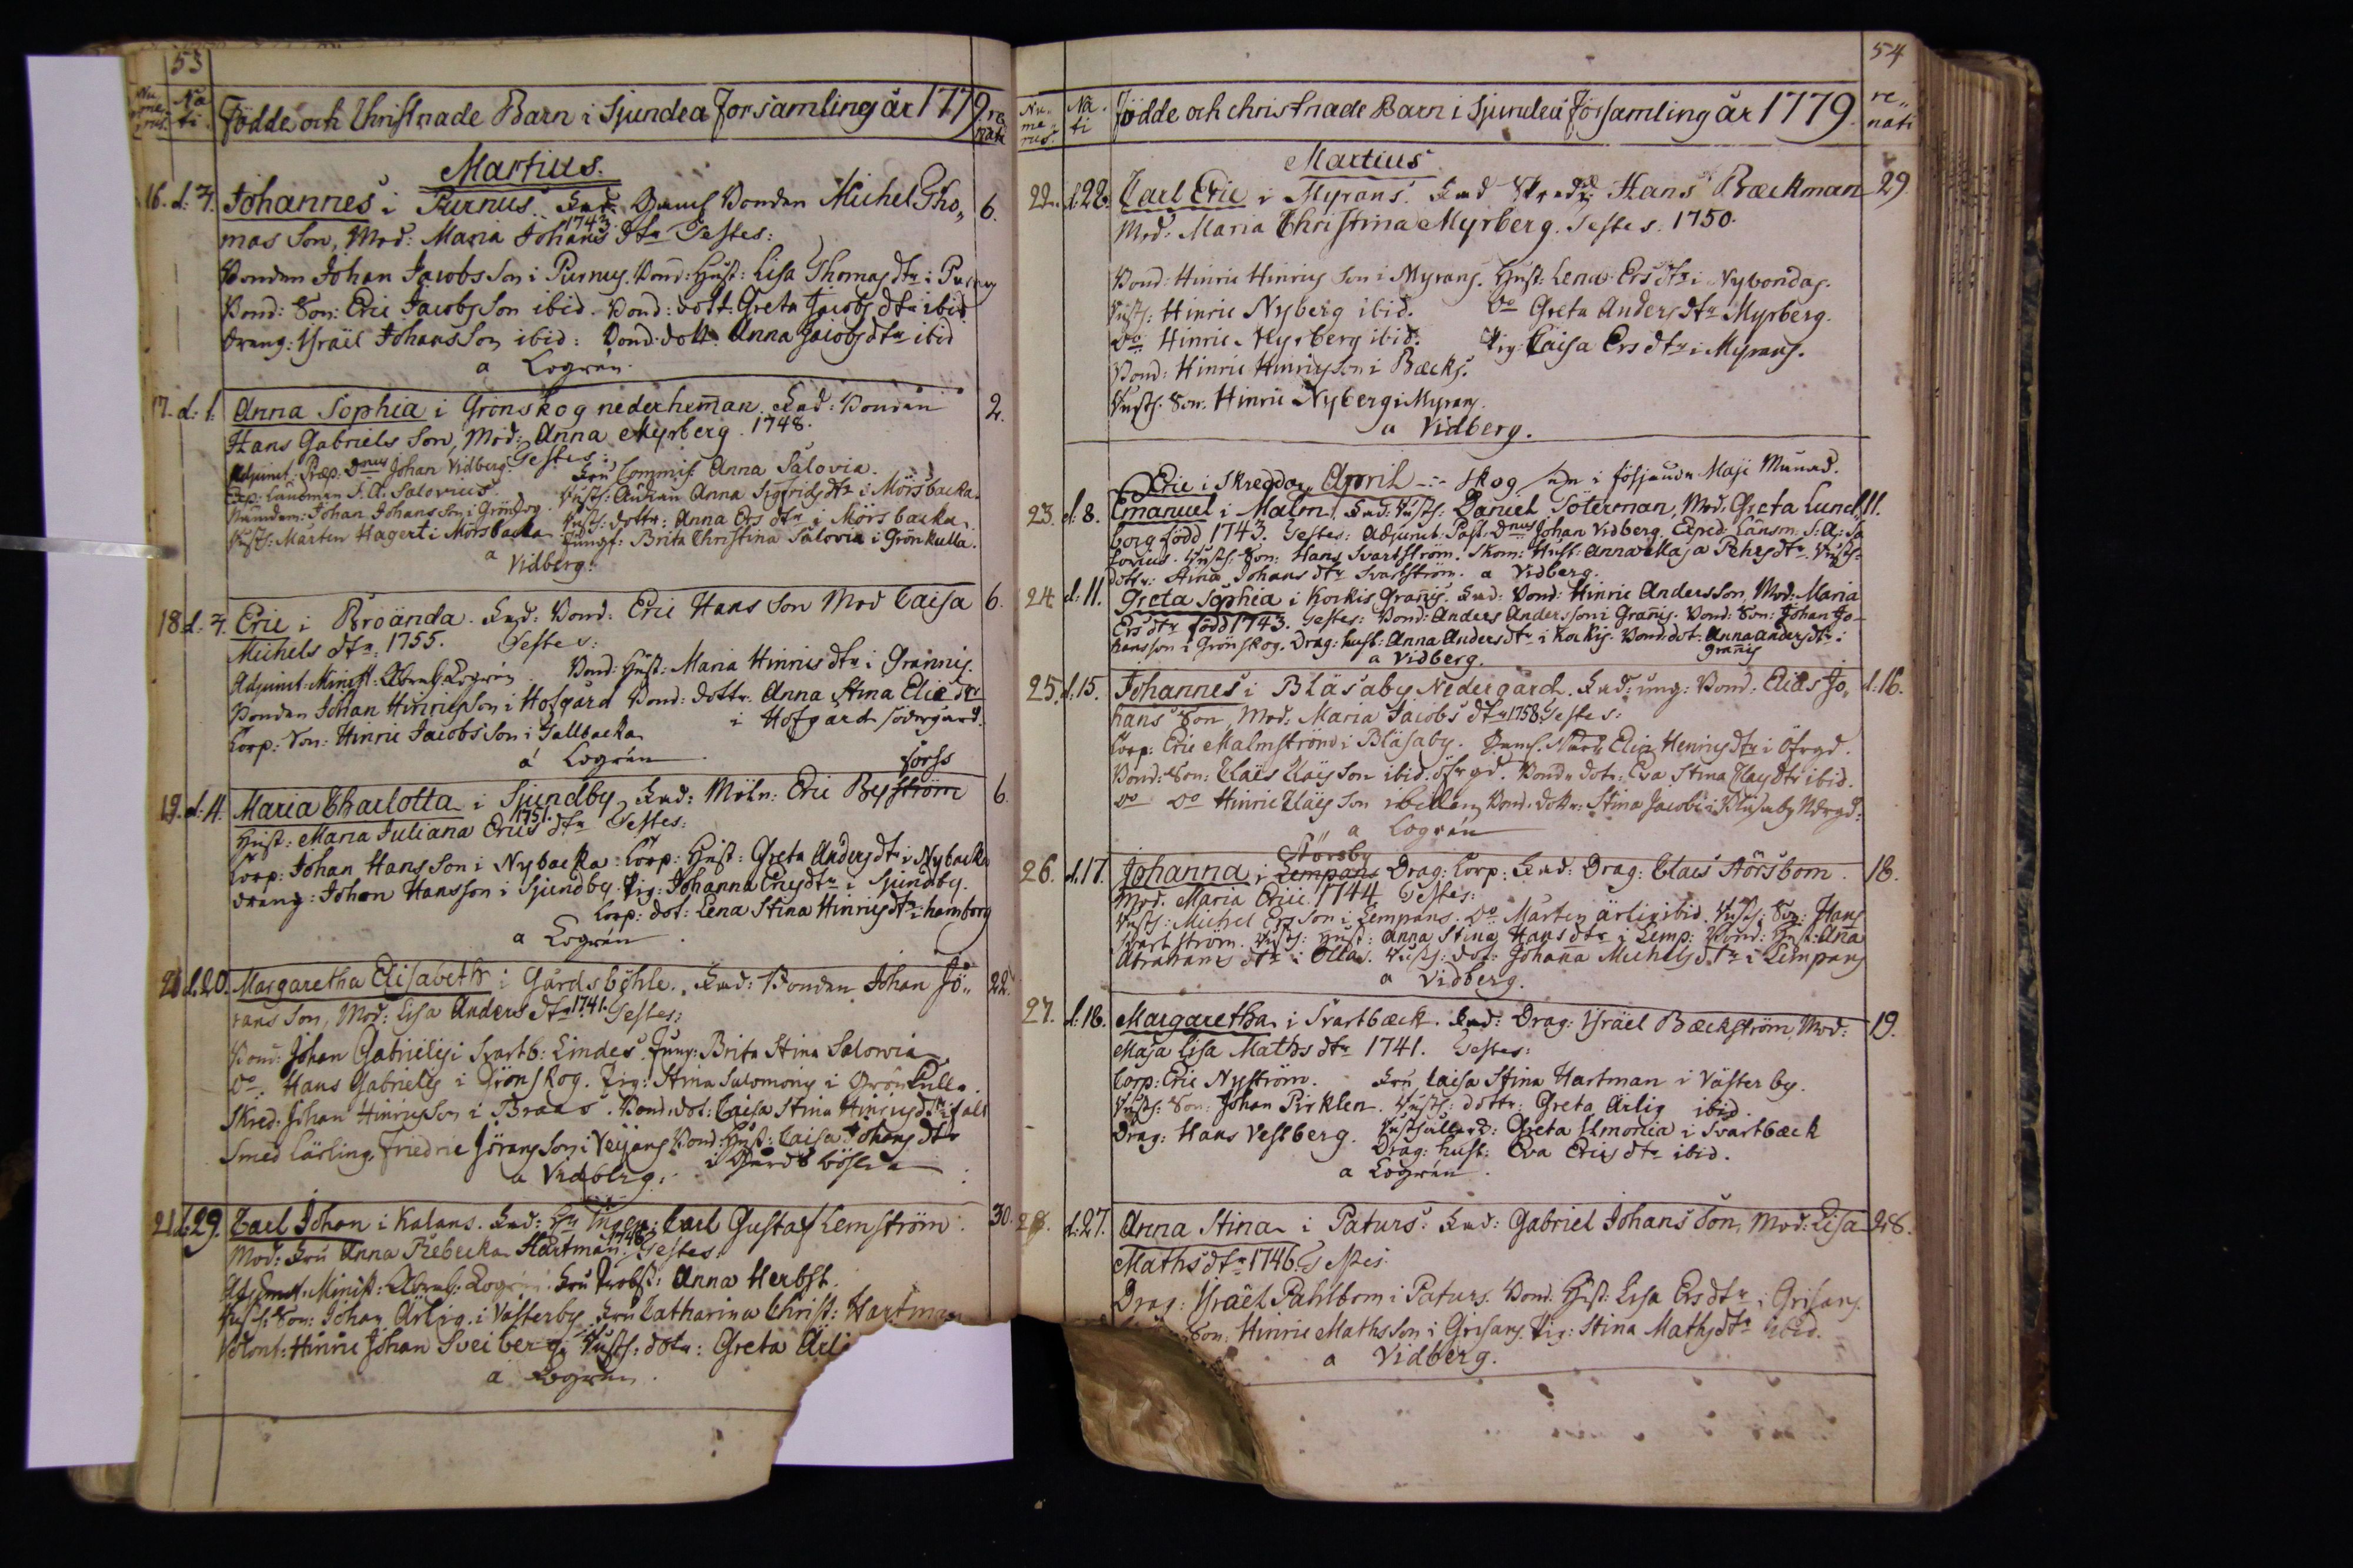 53
Nu me rus. Na ti. Födde och Christnade Barn i Sjundeå Församling år 1779. re nati
Martius.
16. d. 4. Johannes i Purnus. Fad. Bonden Michel Tho„ 6.
mas Son, Mod: Maria Johans dtr 1743. Testes:
Bonden Johan Jacobs Son i Purnus. Bond: Hust: Lisa Thomas dtr i Purnus
Bond: Son: Eric Jacobs Son ibid. Bond: dott: Greta Jacobs dtr ibid
Dräng: Israël Johans Son ibid: Bond: dott: Anna Jacobs dtr ibid
a Logrén.
17. d. 1. Anna Sophia i Grönskog nederheman. Fad: Bonden 2.
Hans Gabriels Son, Mod: Anna Myrberg. 1748.
Testes:
Adjunct. Præp. Dnus Johan Vidberg. Fru Commiss Anna Salovia.
Exp: Länsman S. A. Salovius. Anna Sigfrids dtr i Mörsbacka.
Nämdem: Johan Johans Son i Grönskog. dottr: Anna Ers dtr i Mörsbacka.
Mårten Hagert i Mörsbacka Jungf: Brita Christina Salovia i Grönkulla.
a Vidberg.
18 d. 4. Eric i Broända. Fad: Bond: Eric Hans Son Mod Caisa 6.
Michels dtr. 1755. Testes:
Adjunct. Minist: Abrah: Logrén. Bond: Hust: Maria Hinrics dtr i Grännis.
Bonden Johan Hinrics Son i Hofgård Bond: dottr. Anna Stina Elie dtr
Corp: Son: Hinric Jacobs Son i Tallbacka i Hofgård södergård.
a Logrén.
forss
19. d. 4. Maria Charlotta i Sjundby Fad: Möln: Eric Byström 6.
Hust: Maria Juliana Erics dtr 1751. Testes:
Corp: Johan Hans Son i Nybacka. Corp: Hust: Greta Anders dtr i Nybacka
dräng: Johan Hansson i Sjundby. Pig: Johanna Erics dtr i Sjundby.
Corp: dot: Lena Stina Hinrics dtr i hamborg
a Logrén.
20 d. 20. Margaretha Elisabeth i Gårdsböhle. Fad: Bonden Johan Jö„ 22.
rans Son, Mod: Lisa Anders dtr 1741. Testes:
Bond: Johan Gabriels i Svartb: Lindes. Jung: Brita Stina Salovia
Do. Hans Gabriels i Grönskog. Pig: Stina Salomons i Grönkulla.
Skred: Johan Hinrics Son i Braas. Bond: dot: Caisa Stina Hinrics dtr
Smed Lärling. Friedric Jörans Son i Veijans Bond: Hust: Caisa Johans dtr
a Vidberg. i Gårdsböhle
21 d. 29. Carl Johan i Kalans. Fad: Carl Gustaf Lemström. 30.
Mod: Fru Anna Rebecka Hartman. 1748. Testes:
Adjunct. Minist: Abrah: Logrén. Fru Probst: Anna Herbst.
Son: Johan Ärlig. i Västerby Fru Catharina Christ: Hartman
Volont: Hinric Johan Sveiberg. dotr: Greta Ärli
a Logrén.
54
Nu me rus. Na ti Födde och christnade Barn i Sjundeå församling år 1779. re„ nati
Martius
22. d. 22. Carl Eric i Myrans. Fad Hans Bæckman 29
Mod: Maria Christina Myrberg. Testes. 1750.
Bond: Hinric Hinrics Son i Myrans. Hust: Lena Ers dtr i Nybondas.
Hinric Nyberg ibid. Do Greta Anders dtr Myrberg.
Do. Hinric Myrberg ibid. Pig: Caisa Ers dtr i Myrans.
Bond: Hinric Hinrics Son i Bæcks.
Son. Hinric Nyberg i Myrans.
a Vidberg.
Eric i Skredda, April -:- skog i följande Maji Månad.
23. d. 8. Emanuel i Malm. Fad: Daniel Söterman, Mod. Greta Lund„ 11.
borg född 1743. Testes: Adjunct: Past: Dnus Johan Vidberg. Exped: Länsm: S: A: Sa
lovius. Son: Hans Svartström. Skom: Hust: Anna Maja Pehrs dtr.
dottr: Stina Johans dtr Svartström. a Vidberg.
24 d. 11. Greta Sophia i Korkis Granis. Fad: Bond: Hinric Anders Son, Mod: Maria
Ers dtr född 1743. Testes: Bond: Anders Anders son i Granis. Bond: Son: Johan Jo-
hansson i Grönskog. Drag: hust: Anna Anders dtr i Korkis. Bond: dot: Anna anders dtr i
a Vidberg. granis
25. d. 15. Johannes i Blåsaby Nedergård. Fad: ung: Bond: Elias Jo„ d. 16.
hans Son, Mod: Maria Jacobs dtr 1758. Testes:
Corp: Eric Malmström i Blåsaby. Elin Henrics dtr i öfrgd.
Bond: Son: Claës Claës Son ibid. öfrgd. Bond dotr: Eva Stina Claës dtr ibid.
Do Do Hinric Claës Son ibidem Bond: dottr: Stina Jacobs i Blåsaby Ndrgd:
a Logrén
Störsby
26. d. 17. Johanna i Lempans Drag: Corp: Fad: Drag: Claës Störsbom. 18.
Mod. Maria Erici. 1744. Testes:
Michel Ers Son i Lempans. Do. Mårten ärlig ibid. Son: Hans
Svartström. Hust: Anna Stina Hans dtr i Lemp: Bond: Hust: Ana
Abrahams dtr i Ollas. dot: Johana Michels dtr i Lempans
a Vidberg.
27. d. 18. Margaretha i Svartbæck. Fad: Drag: Israël Bæckström, Mod: 19.
Maja Lisa Maths dtr 1741. Testes:
Corp: Eric Nyström. Fru Caisa Stina Hartman i Västerby.
Son: Johan Pirklen. dottr: Greta Ärlig ibid.
Drag: Hans Vestberg. Greta Simonia i Svartbæck
Drag: hust: Eva Erics dtr ibid.
a Logrén.
28. d. 27. Anna Stina i Paturs. Fad: Gabriel Johans Son, Mod: Lisa 28.
Maths dtr 1746. Testes:
Drag: Israël Pahlbom i Paturs. Bond: Hust: Lisa Ers dtr i Grisans.
Son: Hinric Maths Son i Grisans. Pig: Stina Maths dtr ibid.
a Vidberg.